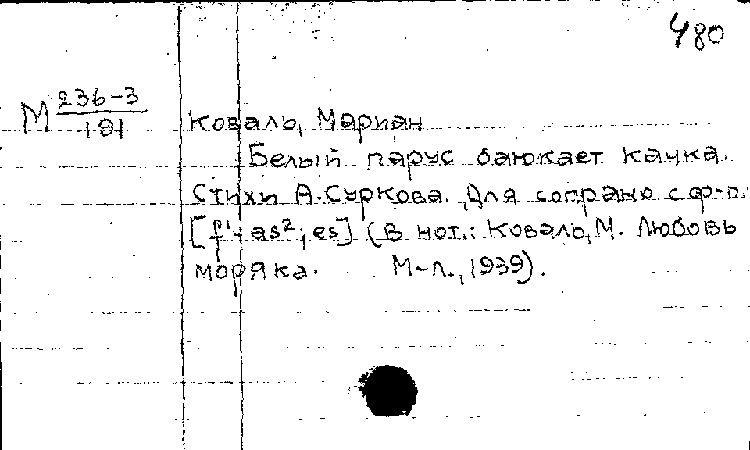 480
М 236-3
191
Коваль, Мариан
Белый парус баюкает качка.
Стихи А. Суркова. Для сопрано с ф-п.
[f¹-as²; es] (В нот.: Коваль, М. Любовь
моряка. М-Л., 1939).